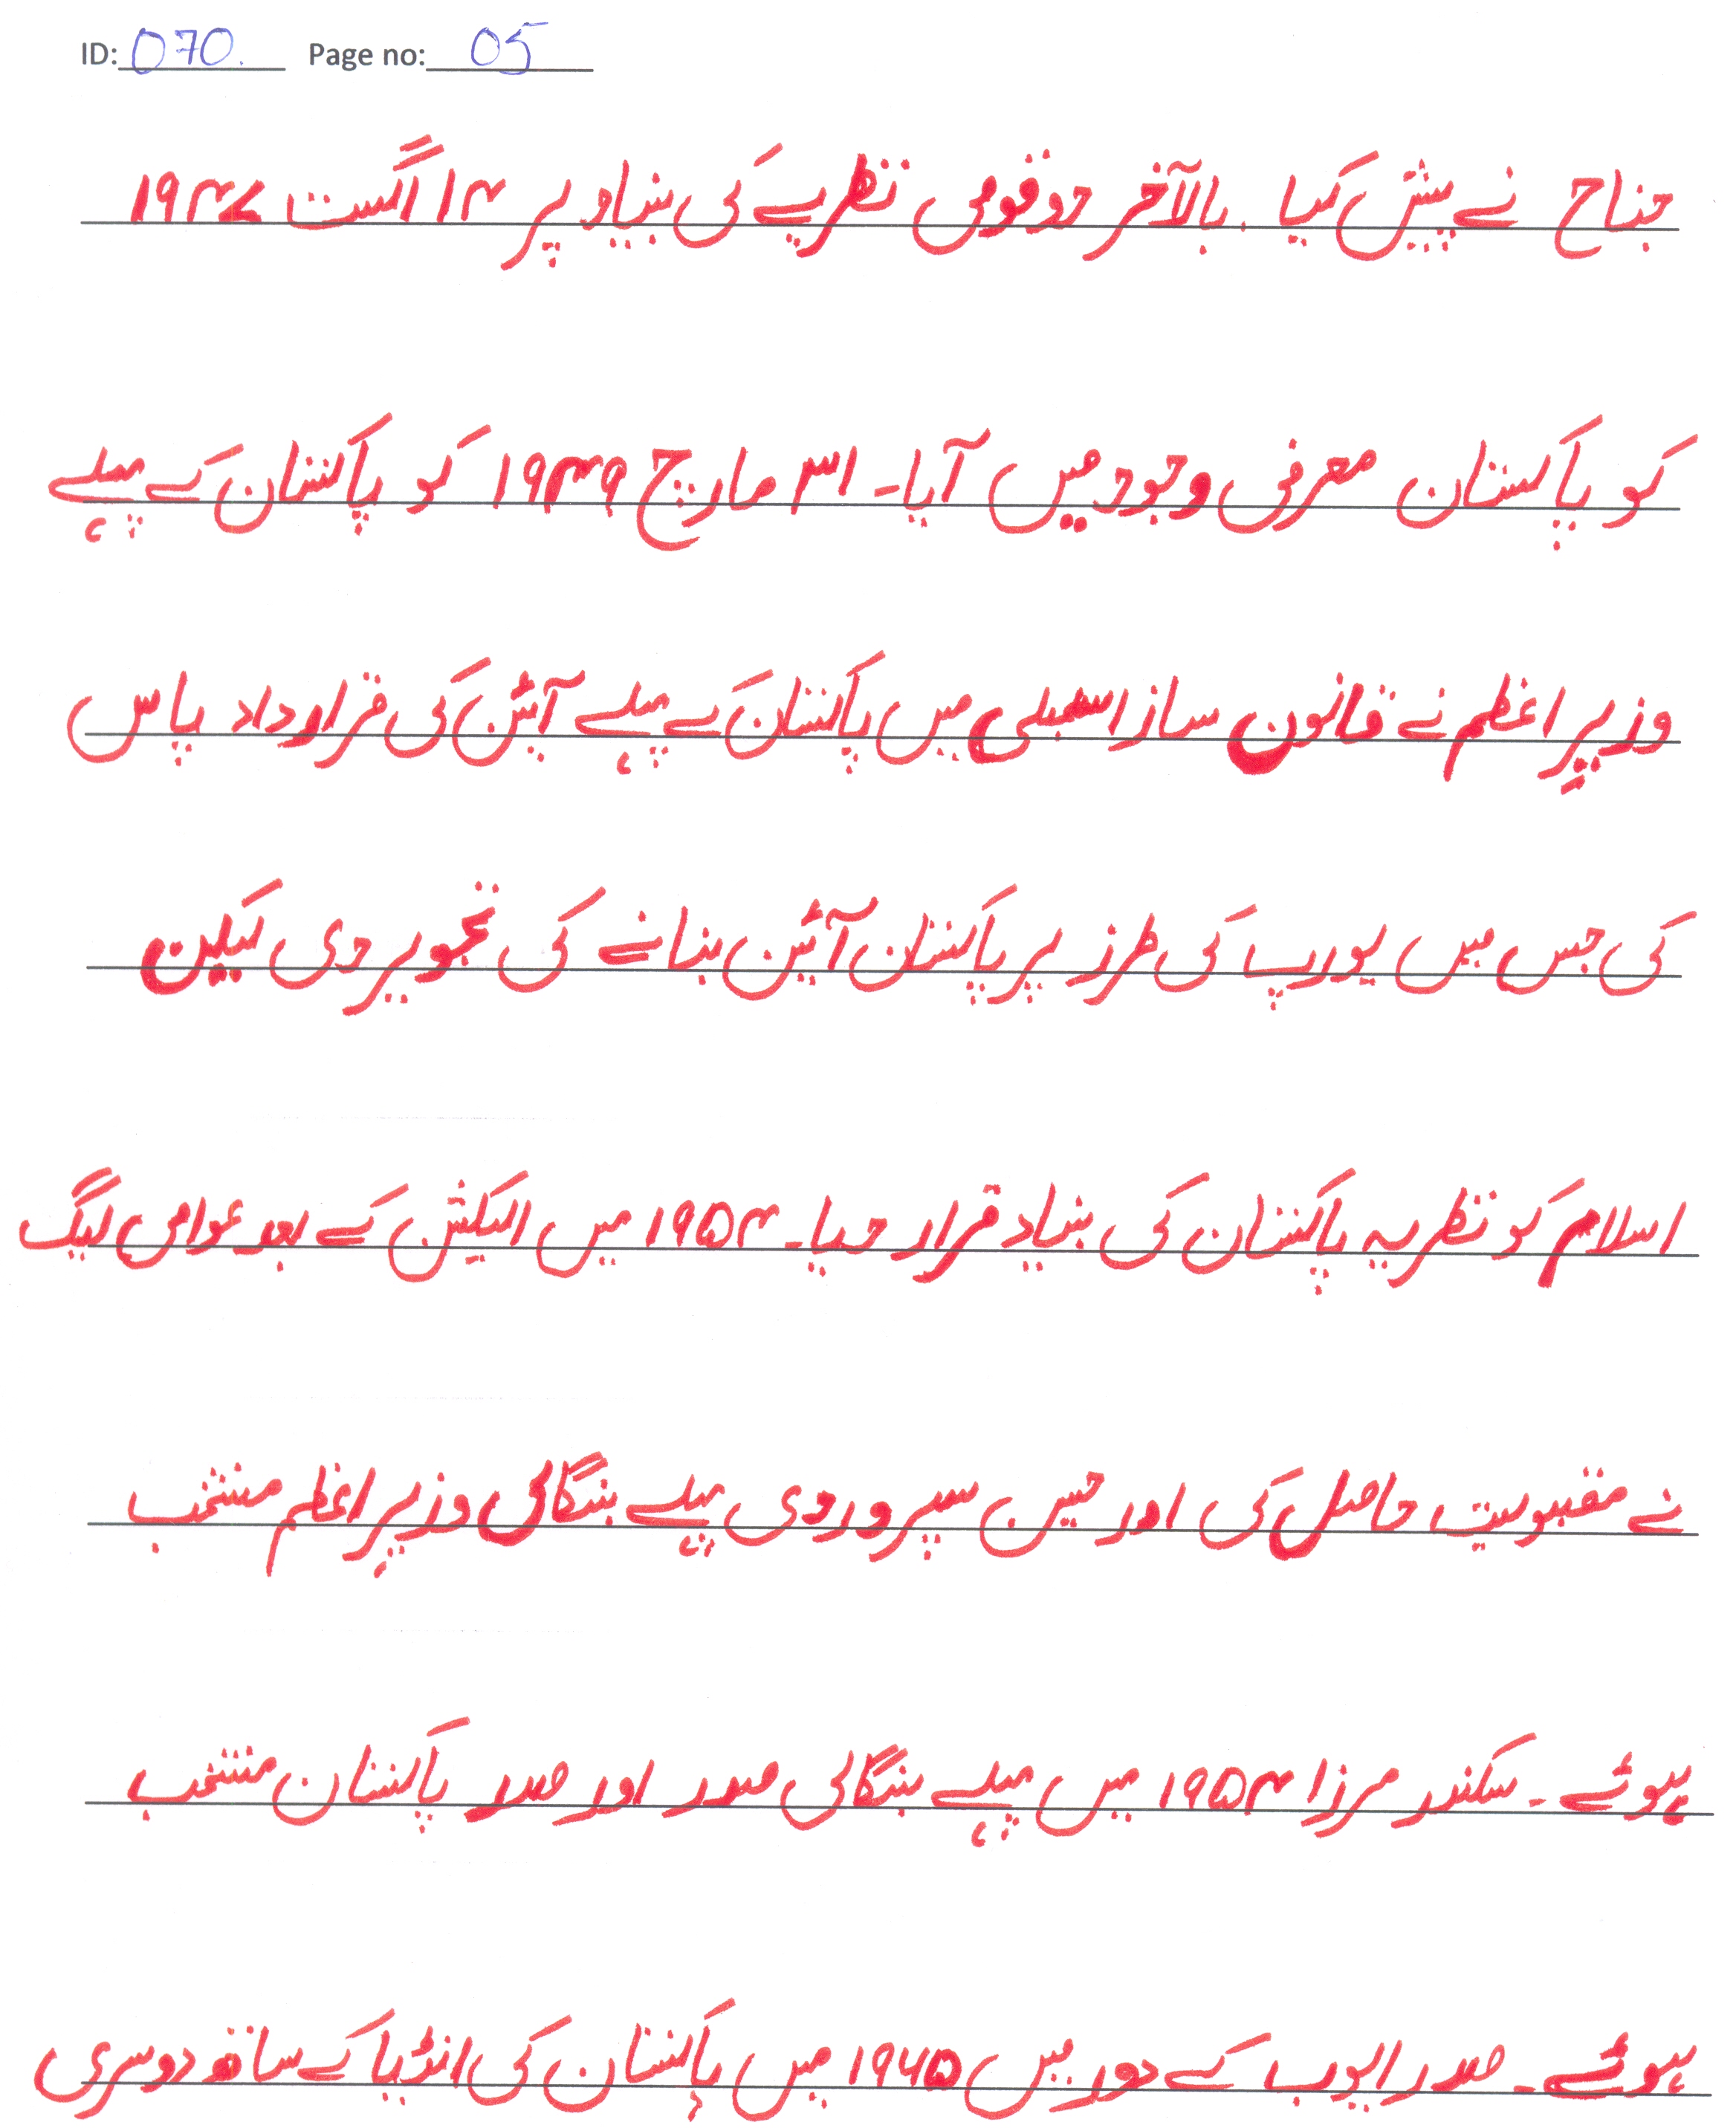 ID: 070. Page no: 05
جناح نے پیش کیا. بالآخر دو قومی نظریے کی بنیاد پر ۱۴ اگست ۱۹۴۷
کو پاکستان معرفی وجود میں آیا۔ ۳۱ مارچ ۱۹۴۹ کو پاکستان کے پہلے
وزیر اعظم نے قانون ساز اسمبلی میں پاکستان کے پہلے آئین کی قراوداد پاس
کی جس میں یورپ کی طرز پر پاکستان آئین بنانے کی تجویر دی لیکن
اسلام کو نظریہ پاکستان کی بنیاد قرار دیا۔ ۱۹۵۴ میں الیکشن کے بعد عوامی لیگ
نے مقبولیت حاصل کی اور حسین سہروردی پہلے بنگالی وزیر اعظم منتخب
ہوئے۔ سکندر مرزا ۱۹۵۴ میں پہلے بنگالی صدر اور صدر پاکستان منتخب
ہوئے۔ صدر ایوب کے دور میں ۱۹۶۵ میں پاکستان کی انڈیا کے ساتھ دوسری